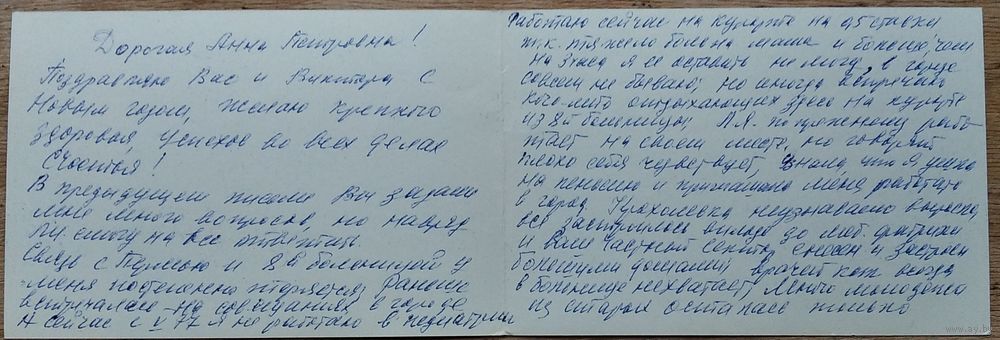 Дорогая Анна Петровна!
Поздравляю Вас и Виктора с
Новым годом, желаю крепкого
здоровья, успехов во всех делах
Счастья!
В предыдущем письме Вы задали
мне много вопросов, но навряд
ли смогу на все ответить.
Связь с и 8й больницей у
меня постепенно теряется, раньше
встречались на совещаниях в городе
А сейчас с V 77 я не работаю в педиатрии
Работаю сейчас на курорте на 0,5 ставки
т.к. тяжело больна мама и больше, чем
на 3 часа я ее оставить не могу, в городе
совсем не бываю, но иногда встречаю
кого-либо отдыхающих здесь на курорте
из 8й больницы. А.Я. по прежнему рабо-
тает на своем месте, но говорят
плохо себя чувствует, узнала, что я ушла
на пенсию и приглашала меня работать
в город. неузнаваемо выросла,
все застроилось вплоть до фабрики
и Ваш частный сектор снесен и застроен
большими домами, врачей как всегда
в больнице нехватает, много молодежи
из старых осталась только
www.ay.by